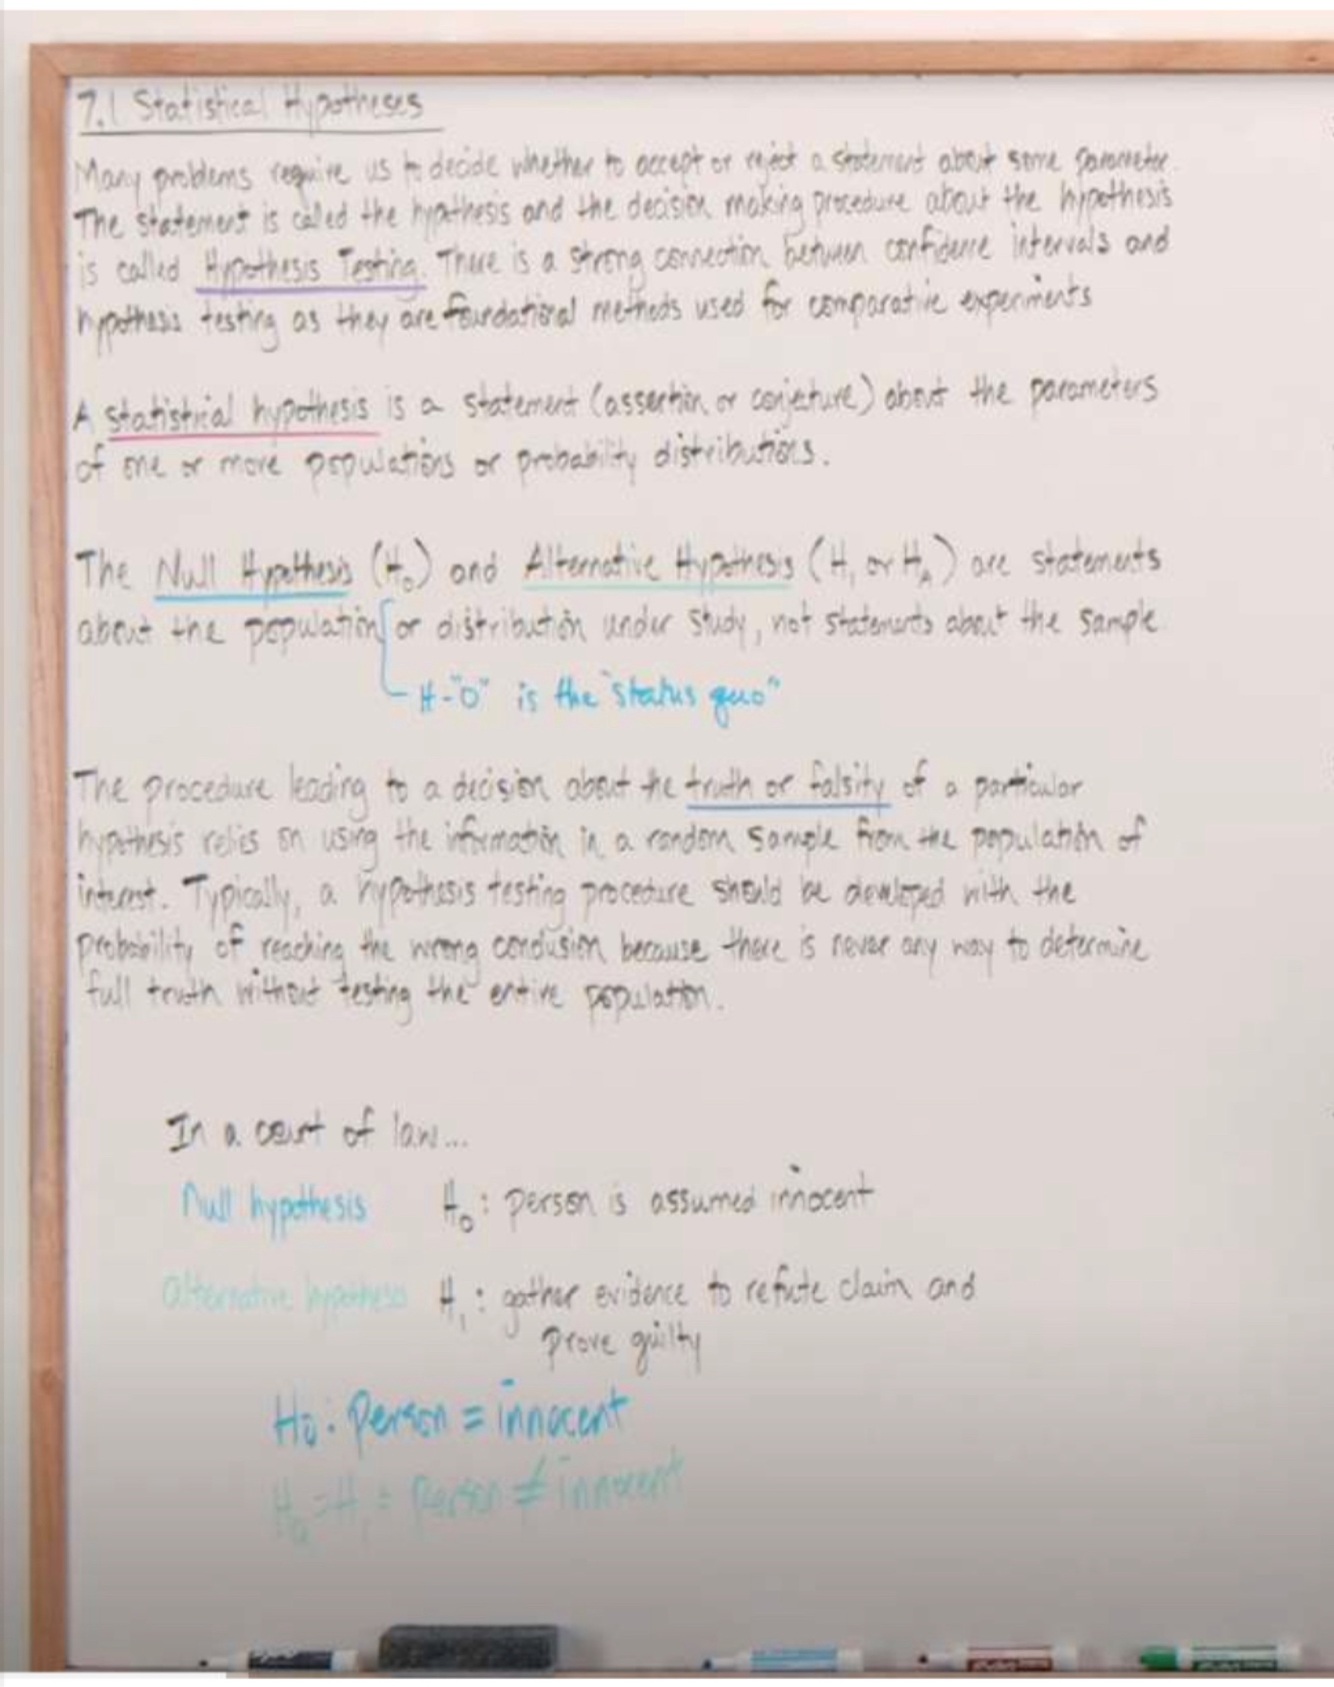 7.1 Statistical Hypotheses
Many problems require us to decide whether to accept or reject a statement about some parameter.
The statement is called the hypothesis and the decision making procedure about the hypothesis
is called Hypothesis Testing. There is a strong connection between confidence intervals and
hypothesis testing as they are foundational methods used for comparative experiments
A statistical hypothesis is a statement (assertion or conjecture) about the parameters
of one or more populations or probability distributions.
The Null Hypothesis (H₀) and Alternative Hypothesis (H₁ or H_A) are statements
about the population or distribution under study, not statements about the sample.
H-"O" is the "status quo"
The procedure leading to a decision about the truth or falsity of a particular
hypothesis relies on using the information in a random sample from the population of
interest. Typically, a hypothesis testing procedure should be developed with the
probability of reaching the wrong conclusion because there is never any way to determine
full truth without testing the entire population.
In a court of law...
Null hypothesis H₀: person is assumed innocent
alternative hypothesis H₁: gather evidence to refute claim and
prove guilty
H₀: Person = innocent
= H₁: person ≠ innocent